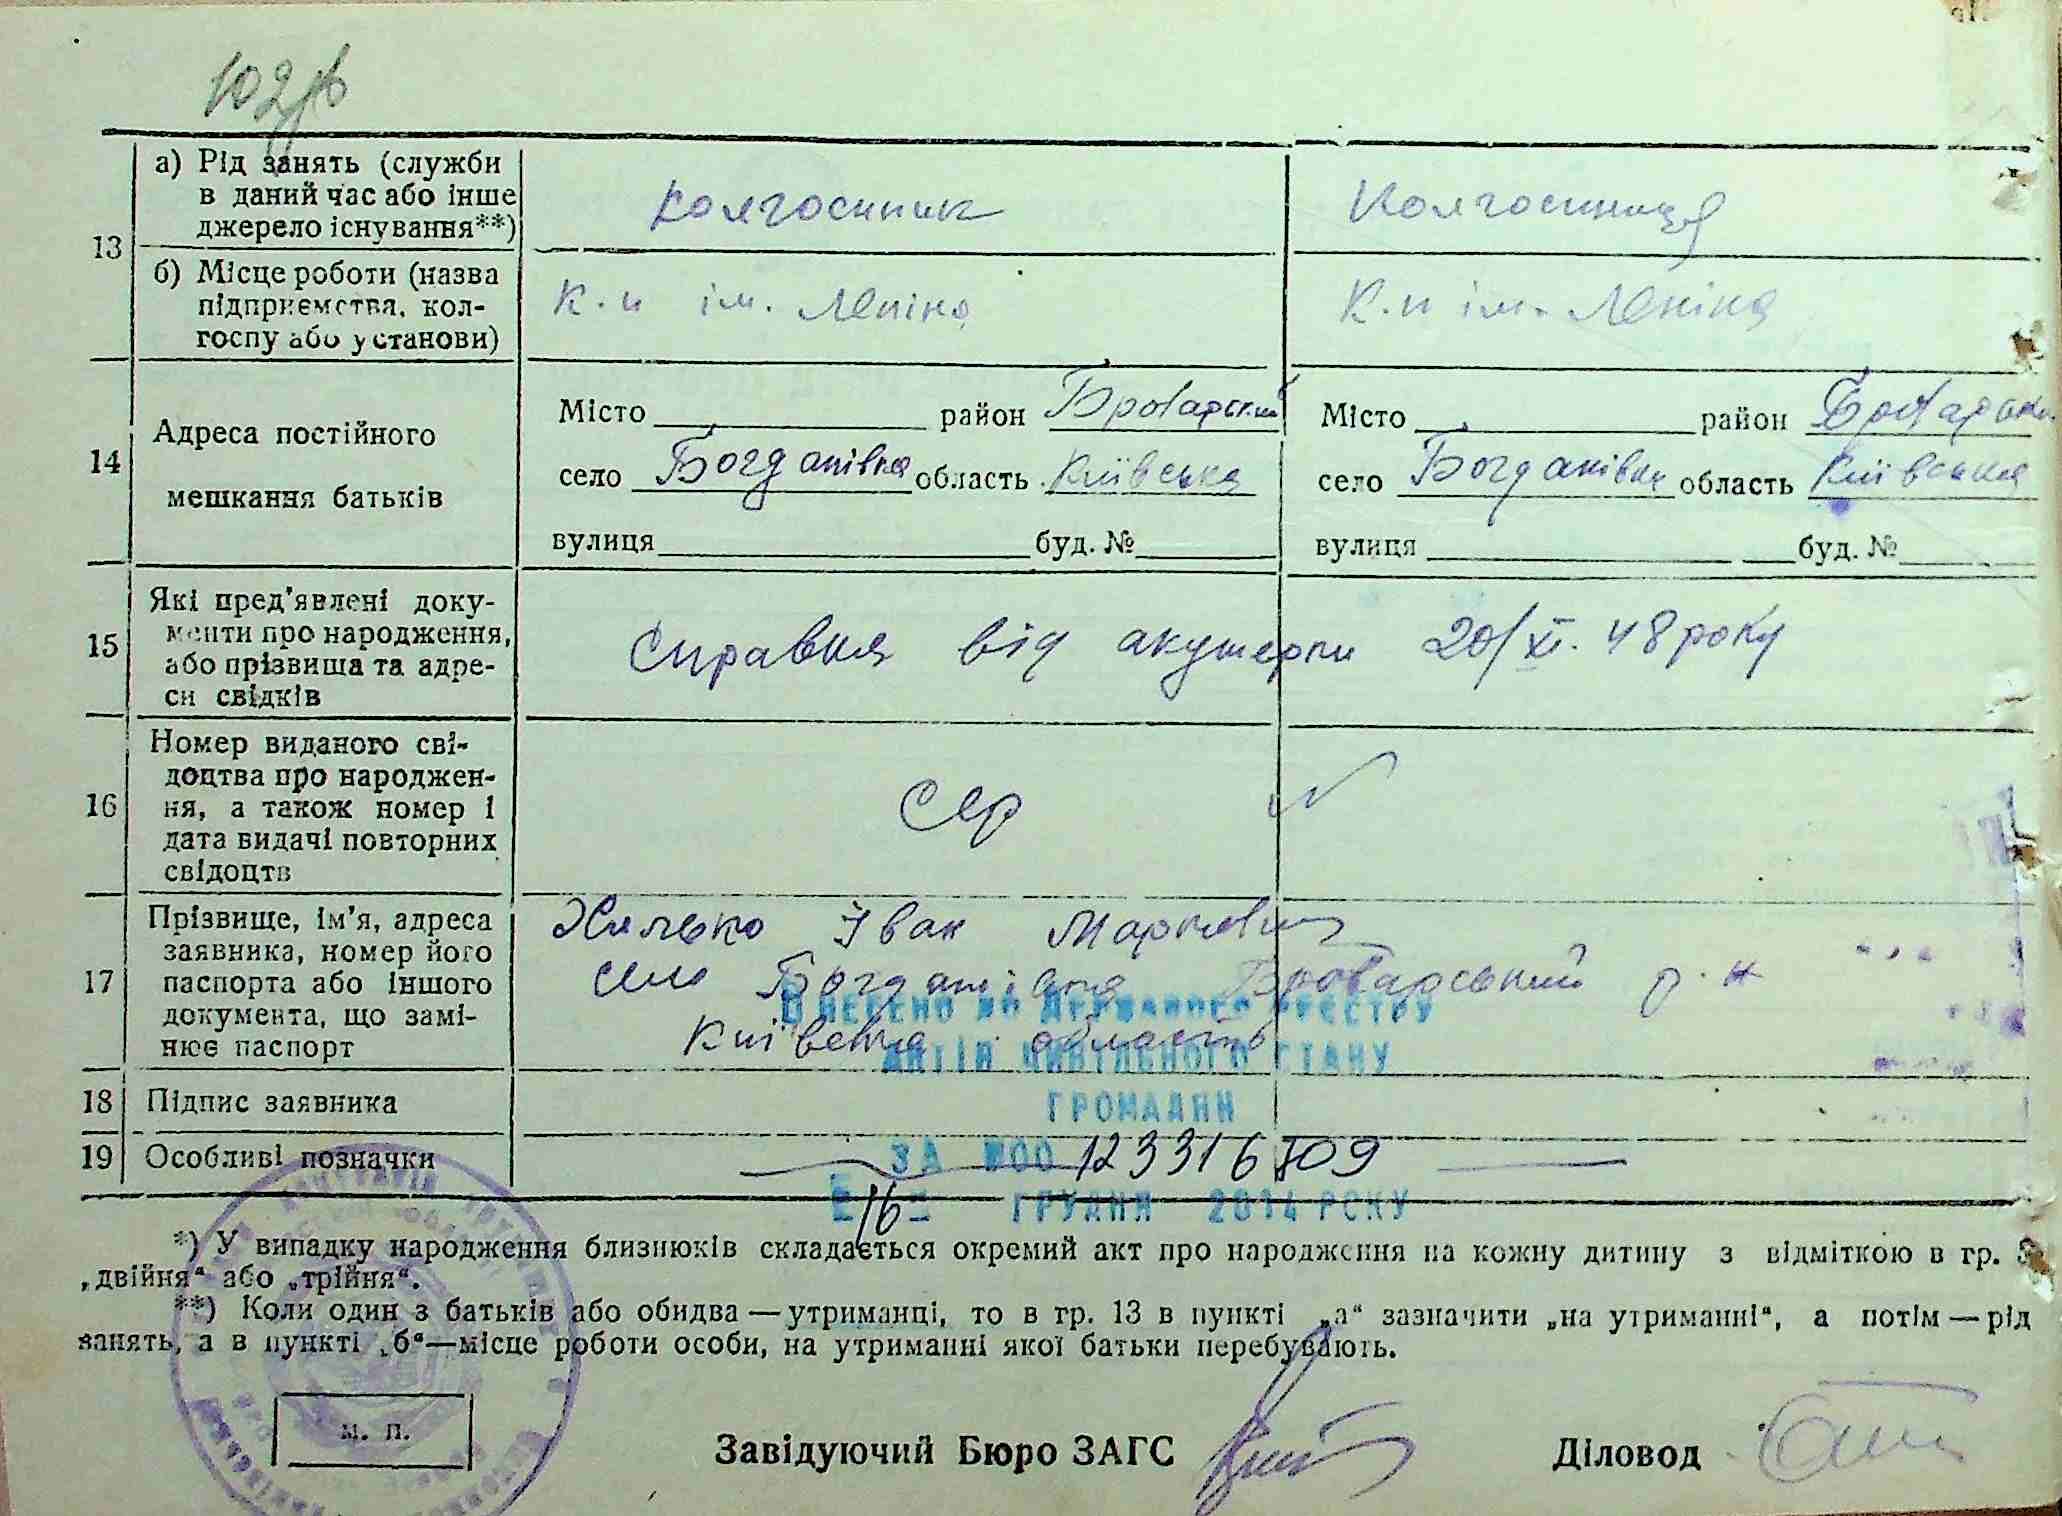 102
13
а) Рід занять (служби
в даний час або інше
джерело існування**)
колгоспник
колгоспниця
б) Місце роботи (назва
підприємства, кол-
госпу або установи)
к-п ім. Леніна
к-п ім. Леніна
14
Адреса постійного
мешкання батьків
Місто район Броварський
село Богданівка область Київська
вулиця буд. №
Місто район Броварськ.
село Богданівка область Київська
вулиця буд. №
15
Які пред'явлені доку-
менти про народження,
або прізвища та адре-
си свідків
Справка від акушерки 20/XI. 48 року
16
Номер виданого сві-
доцтва про народжен-
ня, а також номер і
дата видачі повторних
свідоцтв
Сер N
17
Прізвище, ім'я, адреса
заявника, номер його
паспорта або іншого
документа, що замі-
нює паспорт
Іван Маркович
село Богданівка Броварський р-н
Київська область
ВНЕСЕНО ДО ДЕРЖАВНОГО РЕЄСТРУ
АКТІВ ЦИВІЛЬНОГО СТАНУ
ГРОМАДЯН
18 Підпис заявника
19 Особливі позначки
ЗА №00 123316509
16 ГРУДНЯ 2014 РОКУ
*) У випадку народження близнюків складається окремий акт про народження на кожну дитину з відміткою в гр. 5
„двійня“ або „трійня“.
**) Коли один з батьків або обидва — утриманці, то в гр. 13 в пункті „а“ зазначити „на утриманні“, а потім — рід
занять, а в пункті „б“—місце роботи особи, на утриманні якої батьки перебувають.
М. П.
Завідуючий Бюро ЗАГС
Діловод